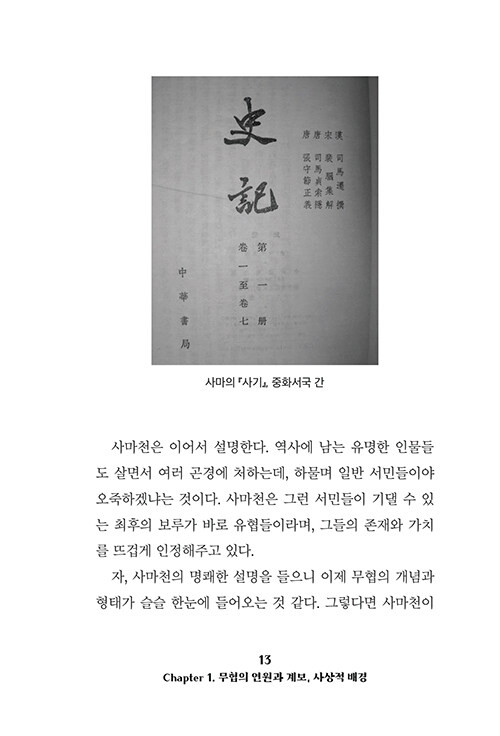 史記
漢 司馬遷 撰
宋 裴駰 集解
唐 司馬貞 索隱
唐 張守節 正義
第一册
卷一至卷七
中華書局
사마의 『사기』, 중화서국 간
사마천은 이어서 설명한다. 역사에 남는 유명한 인물들
도 살면서 여러 곤경에 처하는데, 하물며 일반 서민들이야
오죽하겠냐는 것이다. 사마천은 그런 서민들이 기댈 수 있
는 최후의 보루가 바로 유협들이라며, 그들의 존재와 가치
를 뜨겁게 인정해주고 있다.
자, 사마천의 명쾌한 설명을 들으니 이제 무협의 개념과
형태가 슬슬 한눈에 들어오는 것 같다. 그렇다면 사마천이
13
Chapter 1. 무협의 연원과 계보, 사상적 배경